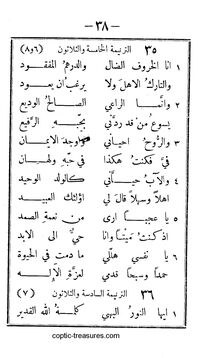 - ٣٨ -
٣٥ الترنيمة الخامسة والثلاثون (٦و٨)
١ انا الخروف الضال والدرهم المفقود
والتارك الاهل ولا يرغب ان يعود
٢ وانما الراعي الصالح الوديع
يسوع من قد ردني بحبه الرفيع
٣ والروح احياني واوجد الايمان
فكنت هكذا في حبه ولهان
٤ والآب حياني كالولد الوحيد
اهلا وسهلا قال لي اولئك العبيد
٥ يا عجبا ارى من نعمة الصمد
اذ كنت ميتا وانا حي الى الابد
٦ يا نفسي هللي ما دمت في الحيوة
حمدا وسبحا قدمي لعزة الاله
٣٦ الترنيمة السادسة والثلاثون (٧)
١ ايها النور البهي كلمة الله القدير
coptic-treasures.com